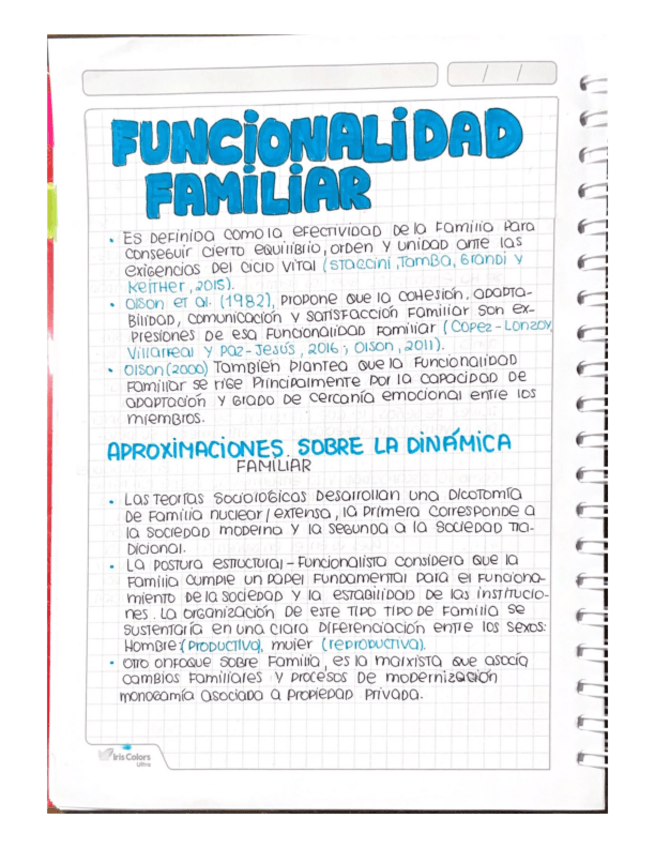 FUNCIONALIDAD
FAMILIAR
• Es definida como la efectividad de la familia para
conseguir cierto equilibrio, orden y unidad ante las
exigencias del ciclo vital (Staccini, Tomba, Grandi y
Keitner, 2015).
• Olson et al. (1982), propone que la cohesión, adapta-
bilidad, comunicación y satisfacción familiar son ex-
presiones de esa funcionalidad familiar (Copez-Lonzoy,
Villarreal y Paz-Jesús, 2016; Olson, 2011).
• Olson (2000) También plantea que la funcionalidad
familiar se rige principalmente por la capacidad de
adaptación y grado de cercanía emocional entre los
miembros.
APROXIMACIONES SOBRE LA DINÁMICA
FAMILIAR
• Las teorías sociológicas desarrollan una dicotomía
de familia nuclear/extensa, la primera corresponde a
la sociedad moderna y la segunda a la sociedad tra-
dicional.
• La postura estructural-funcionalista considera que la
familia cumple un papel fundamental para el funciona-
miento de la sociedad y la estabilidad de las institucio-
nes. La organización de este tipo tipo de familia se
sustentaría en una clara diferenciación entre los sexos:
Hombre (productivo), mujer (reproductiva).
• Otro enfoque sobre familia, es la marxista que asocia
cambios familiares y procesos de modernización
monogamía asociada a propiedad privada.
Iris Colors
Ultra